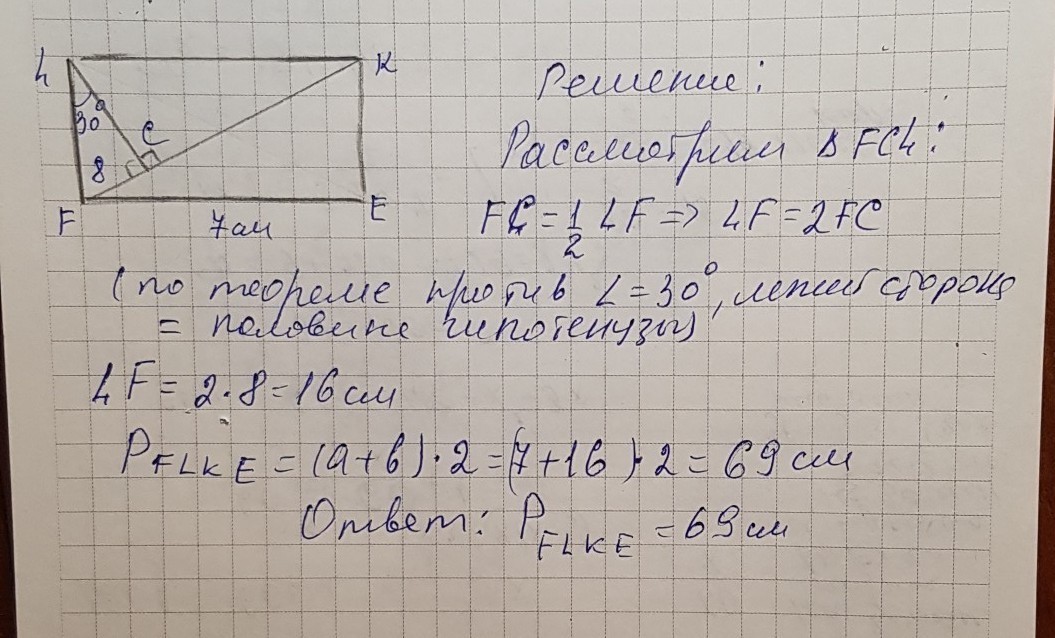 L
K
30°
C
8
F
E
7см
Решение:
Рассмотрим ΔFCL:
FC = 1/2 LF => LF = 2FC
(по теореме против ∠ = 30°, лежит сторона
= половине гипотенузы)
LF = 2·8 = 16 см
P FLKE = (a+b)·2 = (7+16)·2 = 69 см
Ответ: P FLKE = 69 см